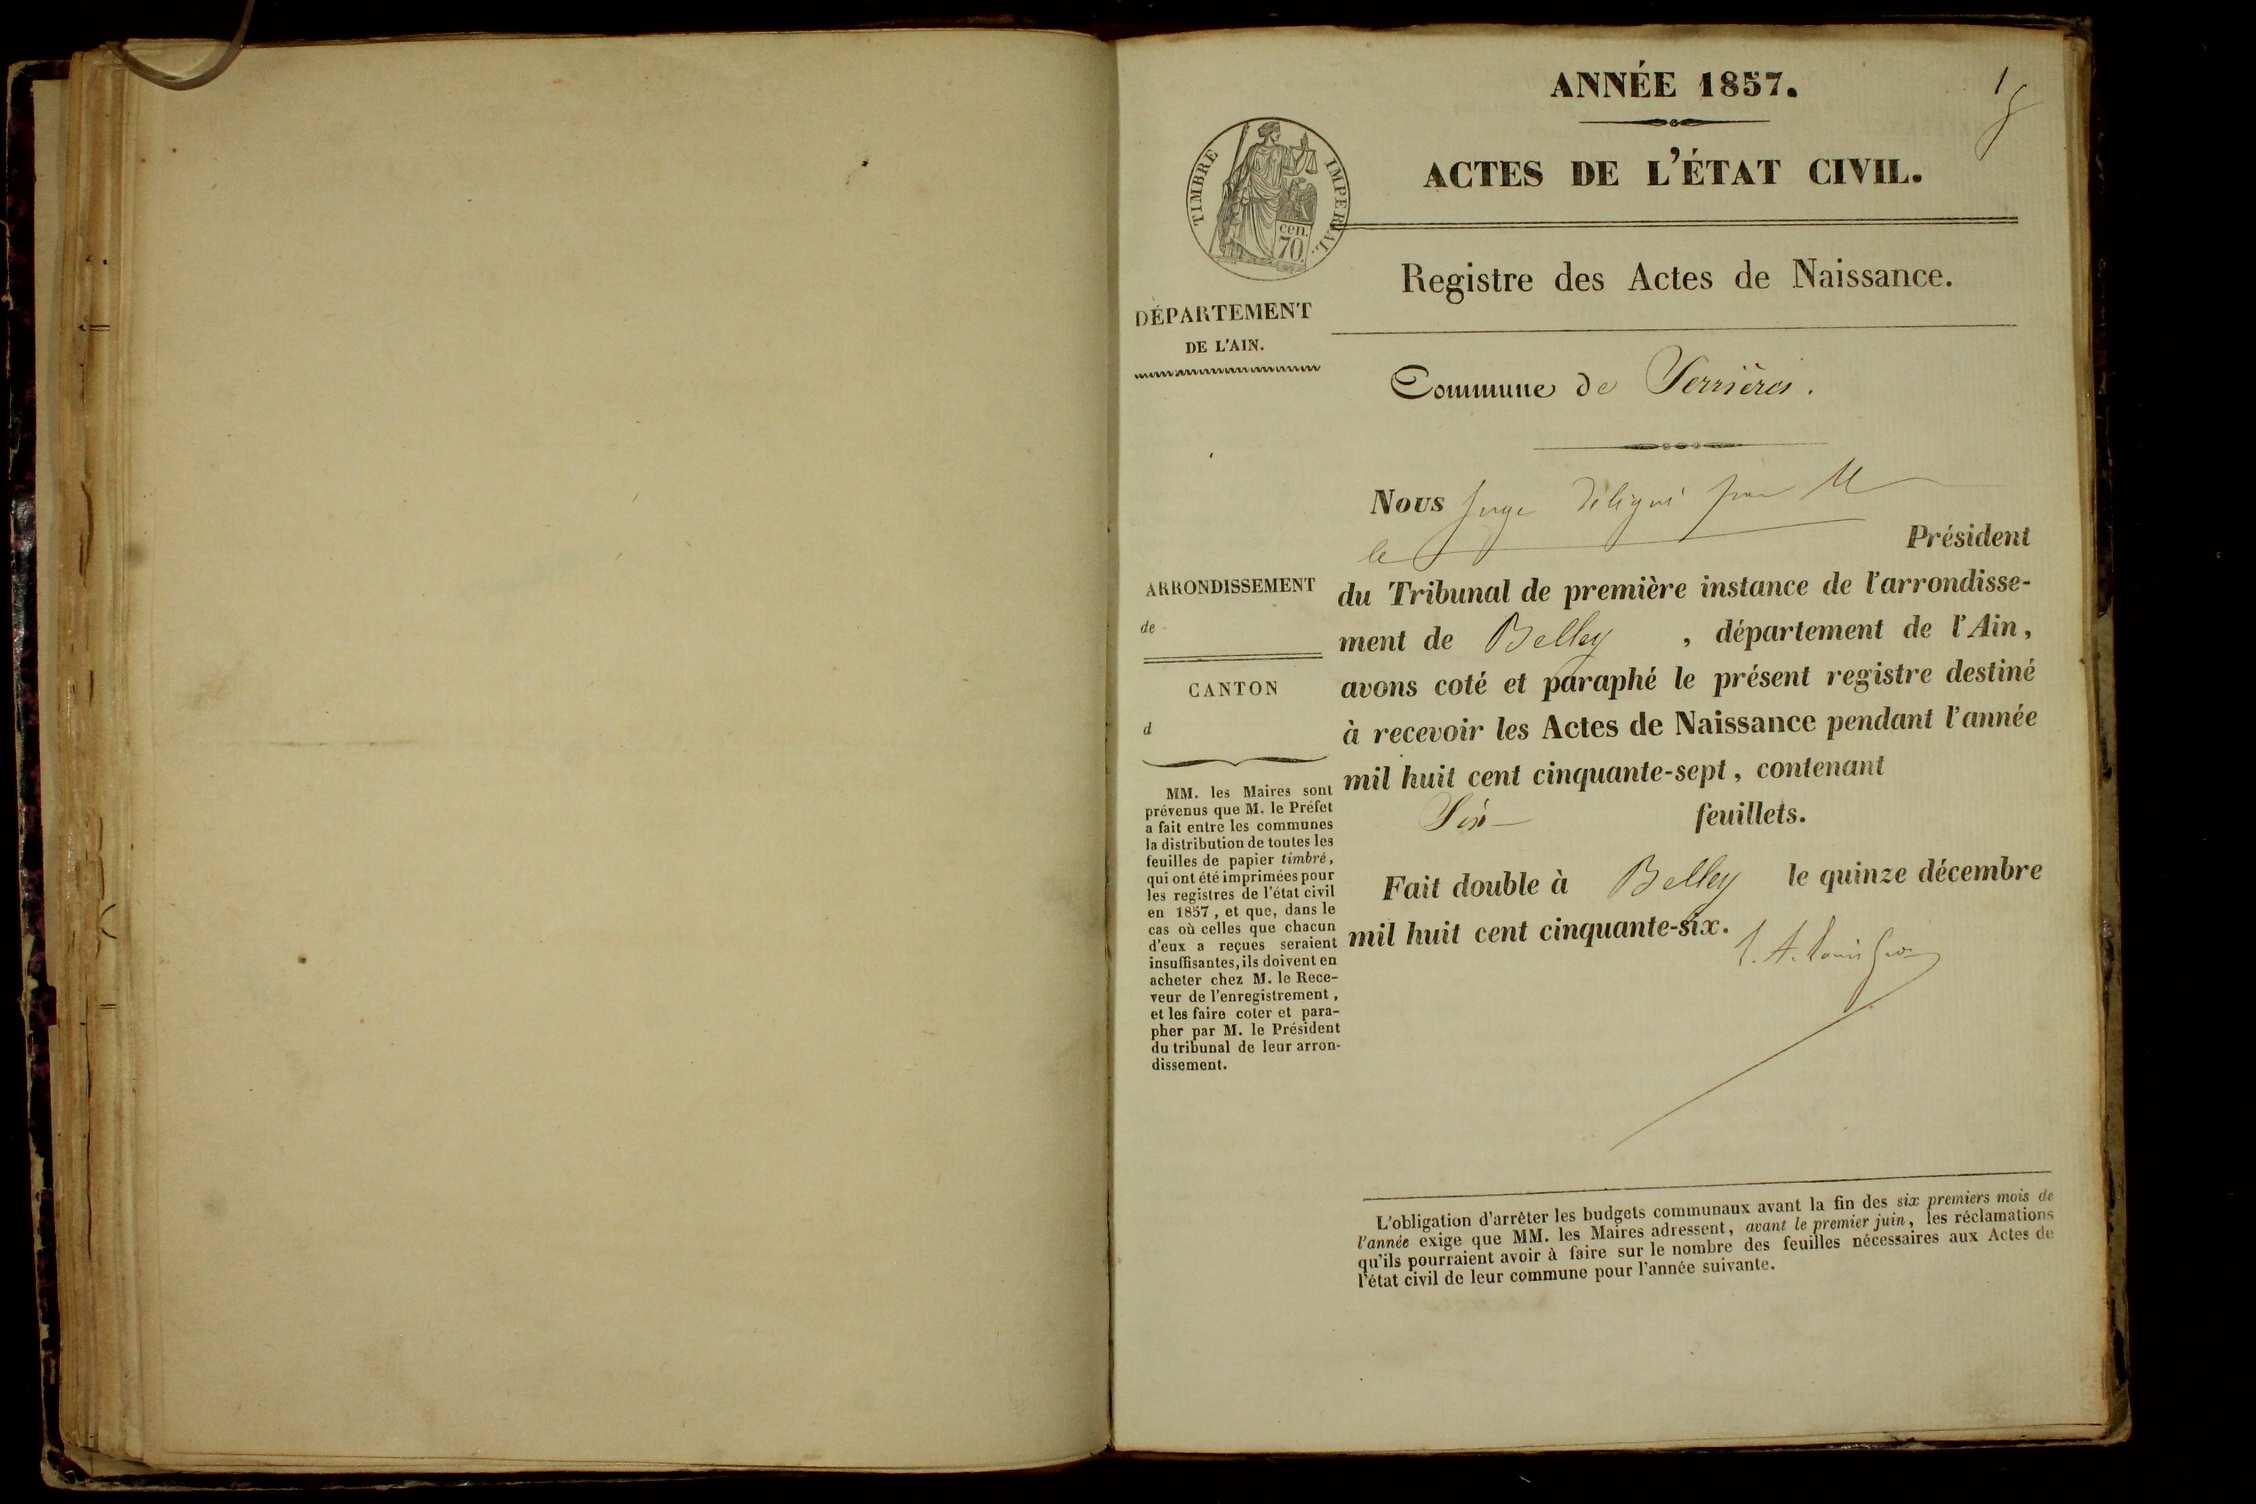 ANNÉE 1857.
1
ACTES DE L'ÉTAT CIVIL.
TIMBRE IMPERIAL.
cen.
70
Registre des Actes de Naissance.
DÉPARTEMENT
DE L'AIN.
Commune de Serrières.
Nous Juge délégué par M
le Président
du Tribunal de première instance de l'arrondisse-
ment de Belley , département de l'Ain,
avons coté et paraphé le présent registre destiné
à recevoir les Actes de Naissance pendant l'année
mil huit cent cinquante-sept, contenant
Six feuillets.
Fait double à Belley le quinze décembre
mil huit cent cinquante-six.
ARRONDISSEMENT
de
CANTON
d
MM. les Maires sont
prévenus que M. le Préfet
a fait entre les communes
la distribution de toutes les
feuilles de papier timbré,
qui ont été imprimées pour
les registres de l'état civil
en 1857, et que, dans le
cas où celles que chacun
d'eux a reçues seraient
insuffisantes, ils doivent en
acheter chez M. le Rece-
veur de l'enregistrement,
et les faire coter et para-
pher par M. le Président
du tribunal de leur arron-
dissement.
L'obligation d'arrêter les budgets communaux avant la fin des six premiers mois de
l'année exige que MM. les Maires adressent, avant le premier juin, les réclamations
qu'ils pourraient avoir à faire sur le nombre des feuilles nécessaires aux Actes de
l'état civil de leur commune pour l'année suivante.